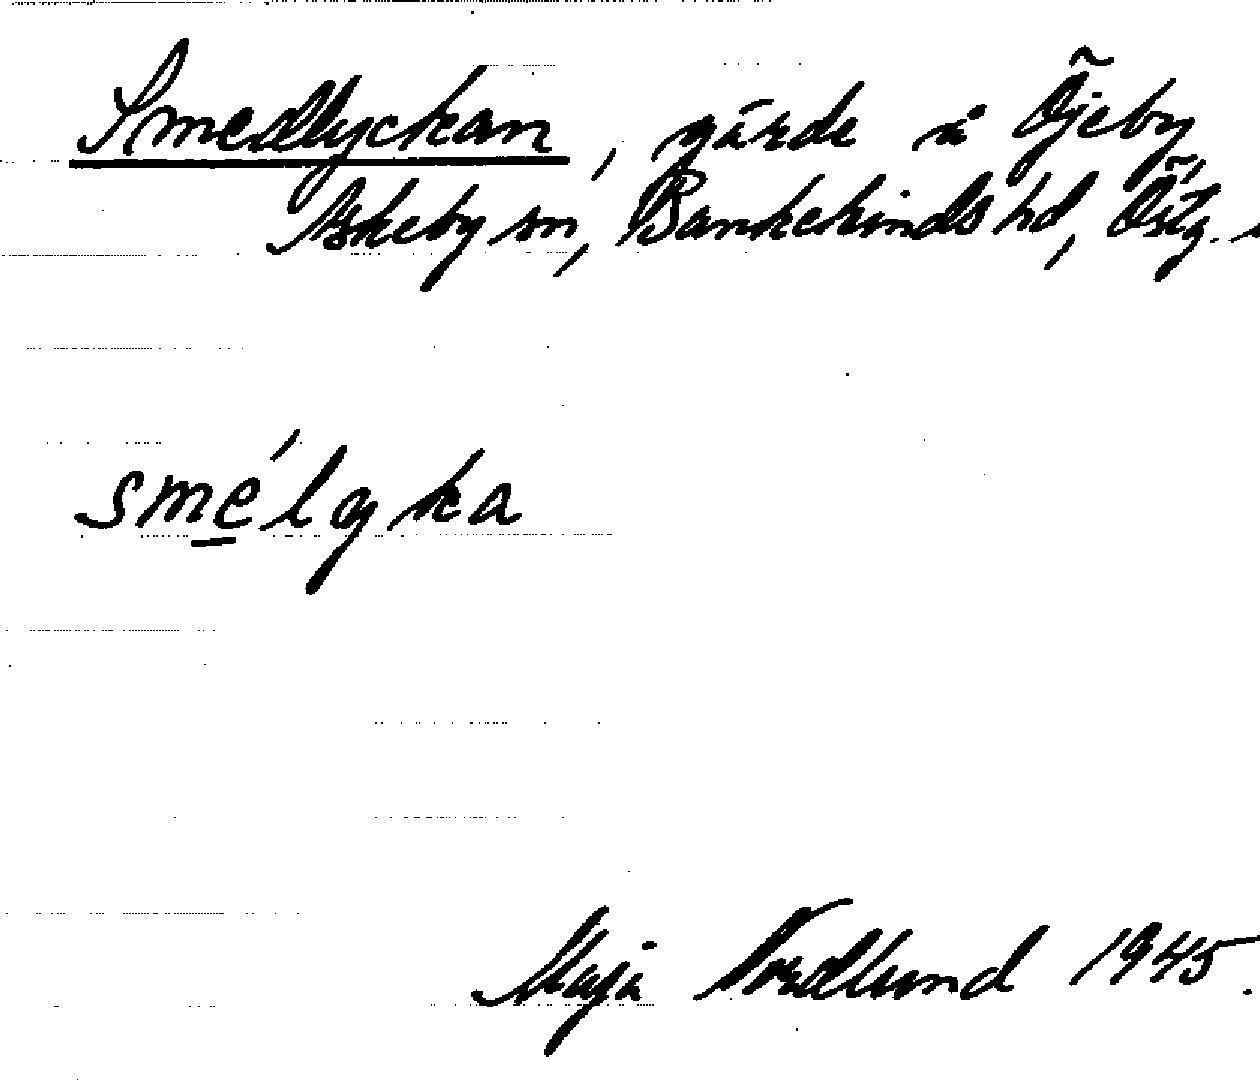 Smedlyckan, gärde å Öjeby
Askeby sn, Bankekinds hd, Östg.
smé̱lyka
Maja Nordlund 1945.